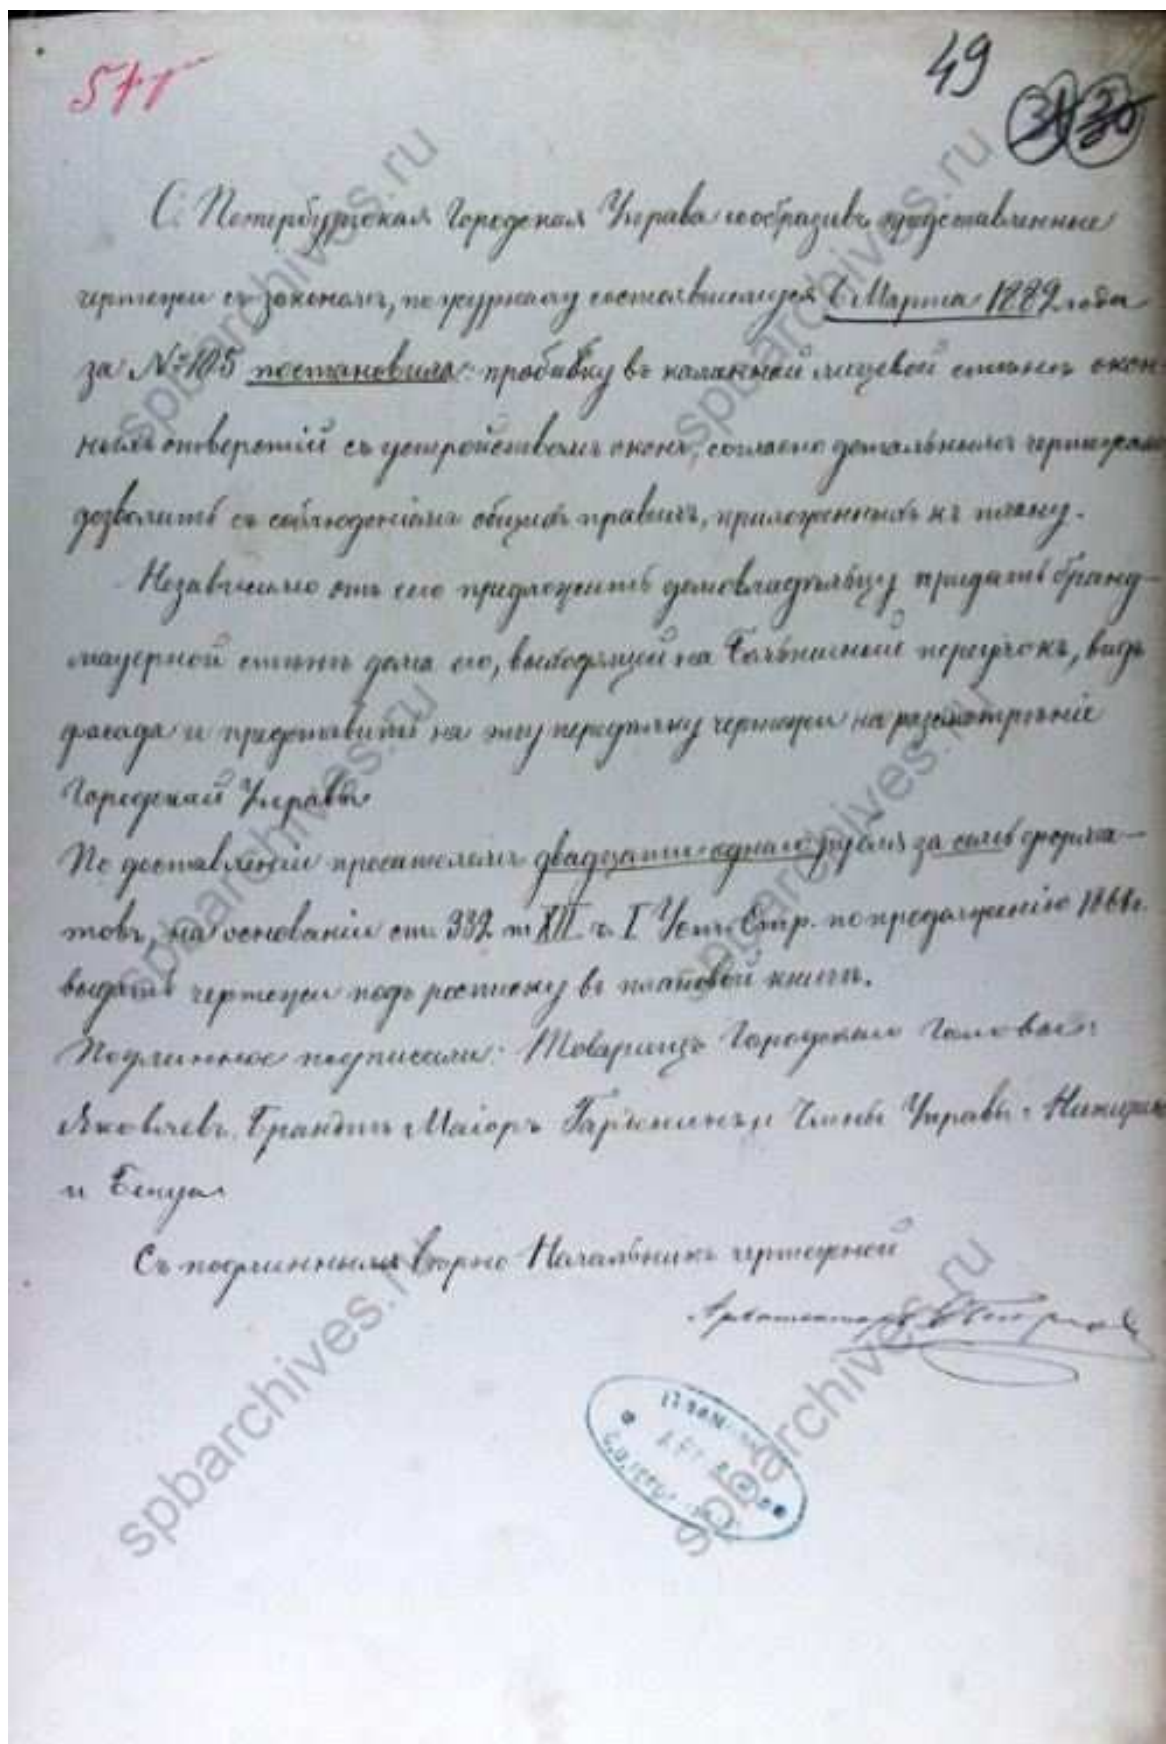 49
С. Петербургская Городская Управа сообразивъ представленные
чертежи съ закономъ, по журналу состоявшемуся 6 Марта 1882 года
за № 105 постановила: пробивку въ каменной лицевой стѣнѣ окон-
ныхъ отверстій съ устройствомъ оконъ, согласно детальнымъ чертежамъ
дозволить съ соблюденіемъ общихъ правилъ, приложенныхъ къ плану.
Независимо отъ сего предложить домовладѣльцу придать бранд-
мауерной стѣнѣ дома его, выходящей на переулокъ, видъ
фасада и представить на эту передѣлку чертежи на разсмотрѣніе
Городской Управы.
По доставленіи просителемъ двадцати одного рубля за семь форма-
товъ, на основаніи ст. 332 т. XII ч. I Уст. Стр. по продолженію 1868 г.
выдать чертежи подъ росписку въ плановой книгѣ.
Подлинное подписали: Товарищъ Городскаго Головы:
Яковлевъ, Брандтъ Маіоръ и Члены Управы:
и Бенуа.
Съ подлиннымъ вѣрно: Начальникъ чертежной
Архитекторъ
spbarchives.ru
spbarchives.ru
spbarchives.ru
spbarchives.ru
spbarchives.ru
spbarchives.ru